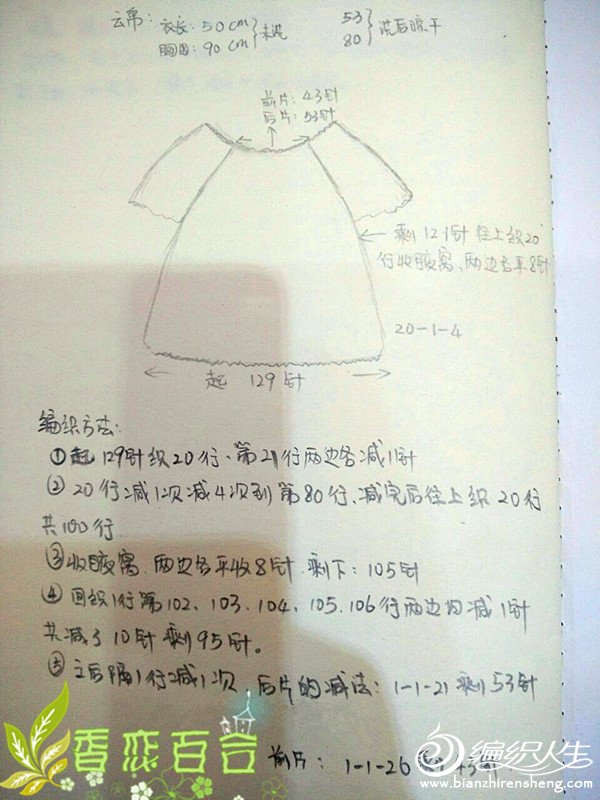 云帛: 衣长: 50cm 未洗 53 洗后晾干
胸围: 90cm 80
前片: 43针
后片: 53针
剩121针往上织20
行收腋窝、两边各平8针
20-1-4
起 129针
编织方法:
①起129针织20行、第21行两边各减1针
②20行减1次减4次到第80行、减完后往上织20行
共100行
③收腋窝.两边各平收8针.剩下: 105针
④回织1行第102、103、104、105、106行两边内减1针
共减了10针剩95针。
⑤之后隔1行减1次 后片的减法: 1-1-21剩53针
前片: 1-1-26
香恋百合
编织人生
www.bianzhirensheng.com